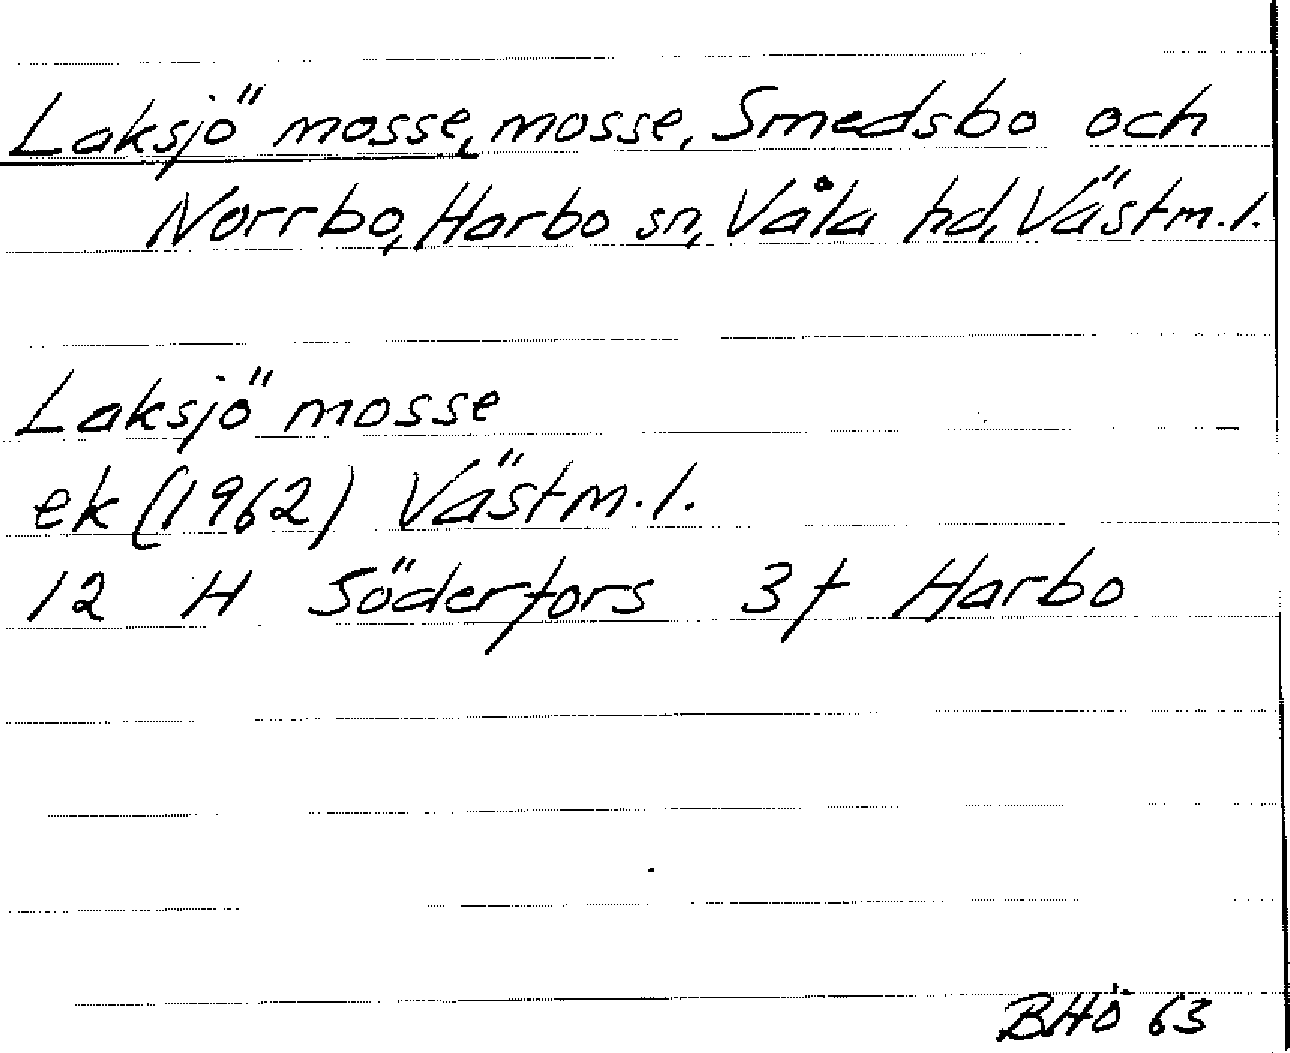 Laksjö mosse, mosse, Smedsbo och
Norrbo, Harbo sn, Våla hd, Västm.l.
Laksjö mosse
ek (1962) Västm.l.
12 H Söderfors 3f Harbo
BHÖ 63